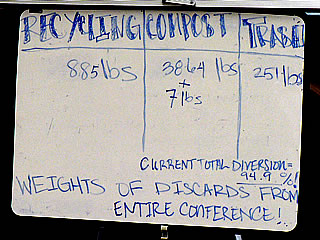 RECYCLING COMPOST TRASH
885 lbs 3864 lbs 251 lbs
+
7 lbs
CURRENT TOTAL DIVERSION=
94.9%!
WEIGHTS OF DISCARDS FROM
ENTIRE CONFERENCE!